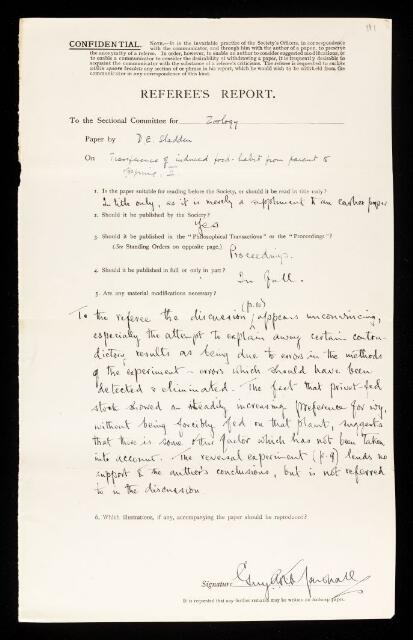 181
CONFIDENTIAL. NOTE.—It is the invariable practice of the Society's Officers, in correspondence
with the communicator, and through him with the author of a paper, to preserve
the anonymity of a referee. In order, however, to enable an author to consider suggested modifications, or
to enable a communicator to consider the desirability of withdrawing a paper, it is frequently desirable to
acquaint the communicator with the substance of a referee's criticisms. The referee is requested to enclose
within square brackets any section of or phrase in his report, which he would wish to be withheld from the
communicator in any correspondence of this kind.
REFEREE'S REPORT.
To the Sectional Committee for Zoology
Paper by D E. Sladden
On Transference of induced food-habit from parent to
offspring. II
1. Is the paper suitable for reading before the Society, or should it be read in title only?
In title only, as it is merely a supplement to an earlier paper
2. Should it be published by the Society?
Yes
3. Should it be published in the "Philosophical Transactions" or the "Proceedings"?
(See Standing Orders on opposite page.) Proceedings.
4. Should it be published in full or only in part?
In full.
5. Are any material modifications necessary?
(p.10)
To the referee the discussion appears unconvincing,
especially the attempt to explain away certain contra-
dictory results as being due to errors in the methods
of the experiment – errors which should have been
detected & eliminated. The fact that privet-fed
stock showed a steadily increasing preference for ivy,
without being forcibly fed on that plant, suggests
that there is some other factor which has not been taken
into account. The reversal experiment (p.9) lends no
support to the author's conclusions, but is not referred
to in the discussion
6. Which illustrations, if any, accompanying the paper should be reproduced?
Signature Guy A K Marshall
It is requested that any further remarks may be written on foolscap paper.